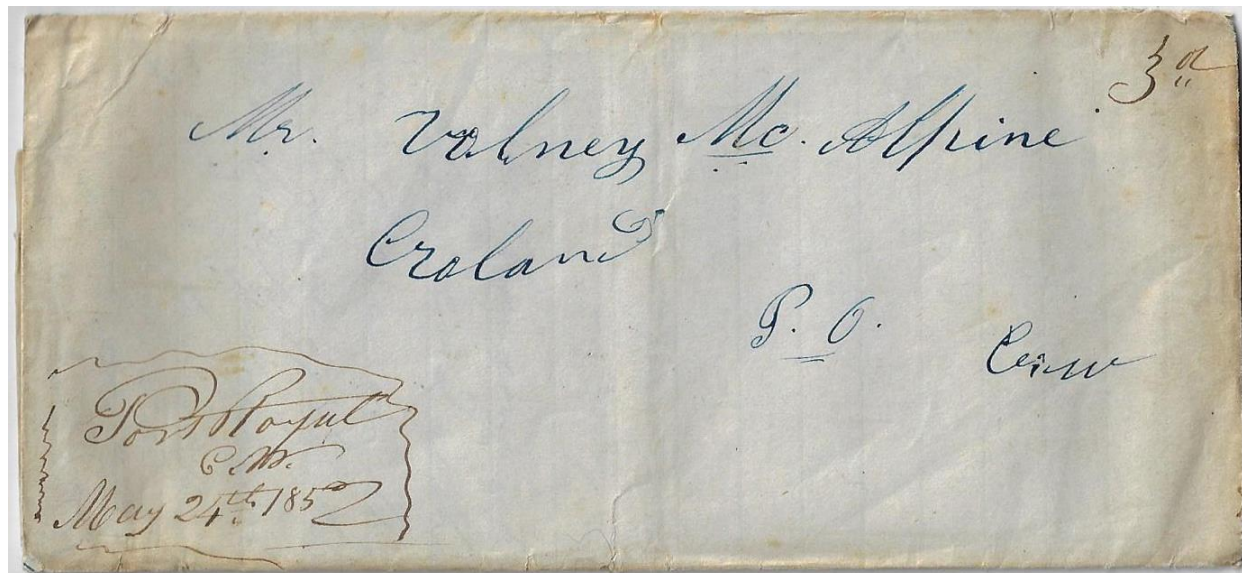 3d
Mr. Volney Mc. Alpine
Croland
P. O. C.W
Port Royal
C.W.
May 24th 1852